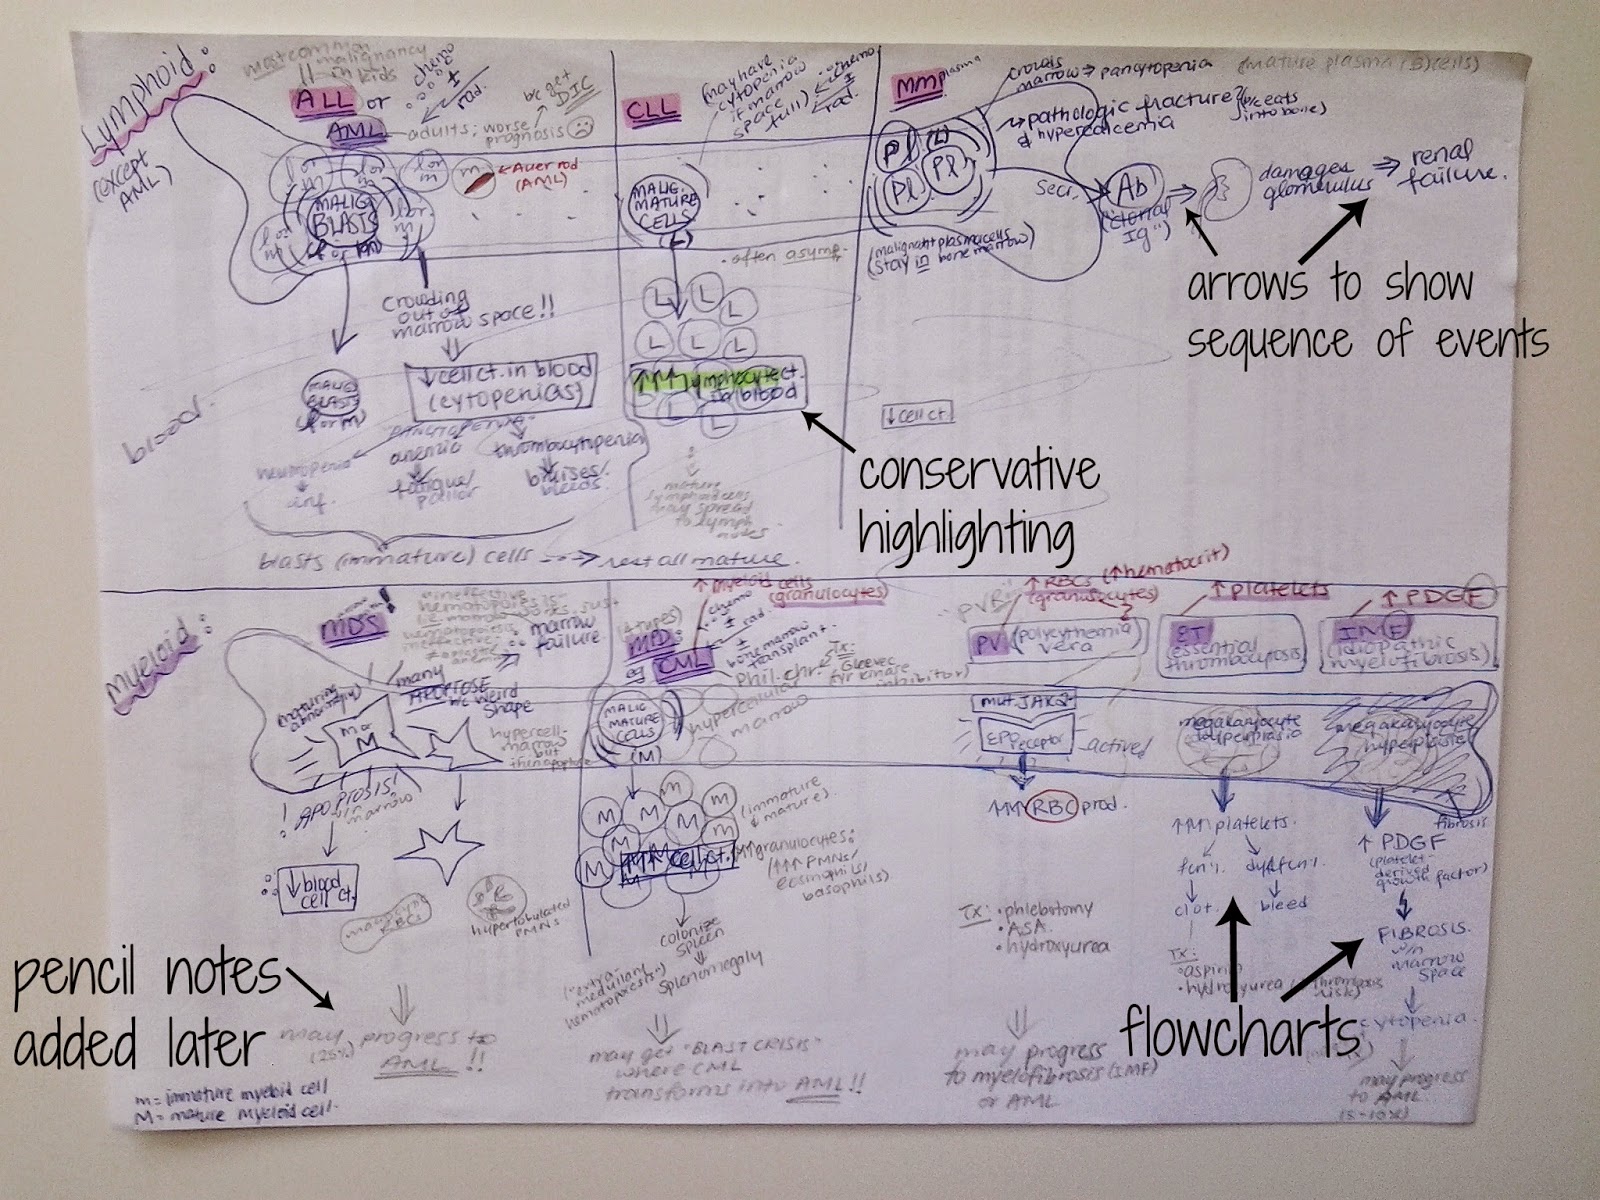 Lymphoid:
(except
AML)
most common
malignancy
in kids
ALL or
AML
chemo
±
rad.
adults; worse
prognosis
b/c get
DIC
Auer rod
(AML)
MALIG.
BLASTS
l or m
l or m
l or m
crowding
out of
marrow space!!
MALIG.
BLASTS
(l or m)
↓ cell ct. in blood
(cytopenias)
pancytopenia
neutropenia
inf.
anemia
fatigue/
pallor
thrombocytopenia
bruises/
bleeds.
blood.
blasts (immature) cells
rest all mature
CLL
may have
cytopenia
if marrow
space
full
chemo
±
rad.
MALIG.
MATURE
CELLS
(L)
• often asymp.
L L L
L L L
↑↑↑ lymphocyte ct.
in blood
L
L
mature
lymphoid cells
may spread
to lymph
nodes
MM
plasma
crowds
marrow → pancytopenia
(mature plasma (B) cells)
→ pathologic fracture
& hypercalcemia
b/c eats
into bone
Pl (L)
Pl Pl
(malignant plasma cells
stay in bone marrow)
secr.
Ab
("clonal
Ig")
damages
glomerulus
renal
failure.
↓ cell ct.
arrows to show
sequence of events
conservative
highlighting
Myeloid:
MDS
"ineffective
hematopoiesis"
marrow
failure.
maturing
abnormally
many
APOPTOSE
b/c weird
shape
m or
M
hypercell.
marrow
but
then apoptose
! APOPTOSIS!
in
marrow
↓ blood
cell ct.
RBCs
PMNs
may progress to
(25%)
AML !!
m = immature myeloid cell
M = mature myeloid cell.
pencil notes
added later
(4 types)
MPD:
eg CML
↑ myeloid cells
(granulocytes)
chemo
±
rad.
±
bone marrow
transplant.
Phil. chr.
Tx:
Gleevec
(tyr kinase
inhibitor)
MALIG
MATURE
CELLS
(M)
hypercellular
marrow
M M m m
M M M m
M ↑↑↑ cell ct.
M M
(immature
mature)
↑↑ granulocytes:
(↑↑↑ PMNs/
eosinophils/
basophils)
colonize
spleen
splenomegaly
("extra-
medullary
hematopoiesis")
may get "BLAST CRISIS"
where CML
transforms into AML!!
↑ RBCs (↑ hematocrit)
(granulocytes)
PV (polycythemia
vera)
MUT. JAK2
EPO
receptor
actived
↑↑↑ RBC prod.
Tx: • phlebotomy
• ASA
• hydroxyurea
may progress
to myelofibrosis (IMF)
or AML
↑ platelets
ET
essential
thrombocytosis
megakaryocyte
hyperplasia
↑↑↑ platelets.
fcn'l.
dysfcn'l.
clot.
bleed
Tx:
• aspirin
• hydroxyurea
↑ PDGF
IMF
(idiopathic
myelofibrosis)
megakaryocyte
hyperplasia
fibrosis
↑ PDGF
(platelet-
derived
growth factor)
FIBROSIS.
w/in
marrow
space
cytopenia.
may progress
to AML
(5-10%)
flowcharts